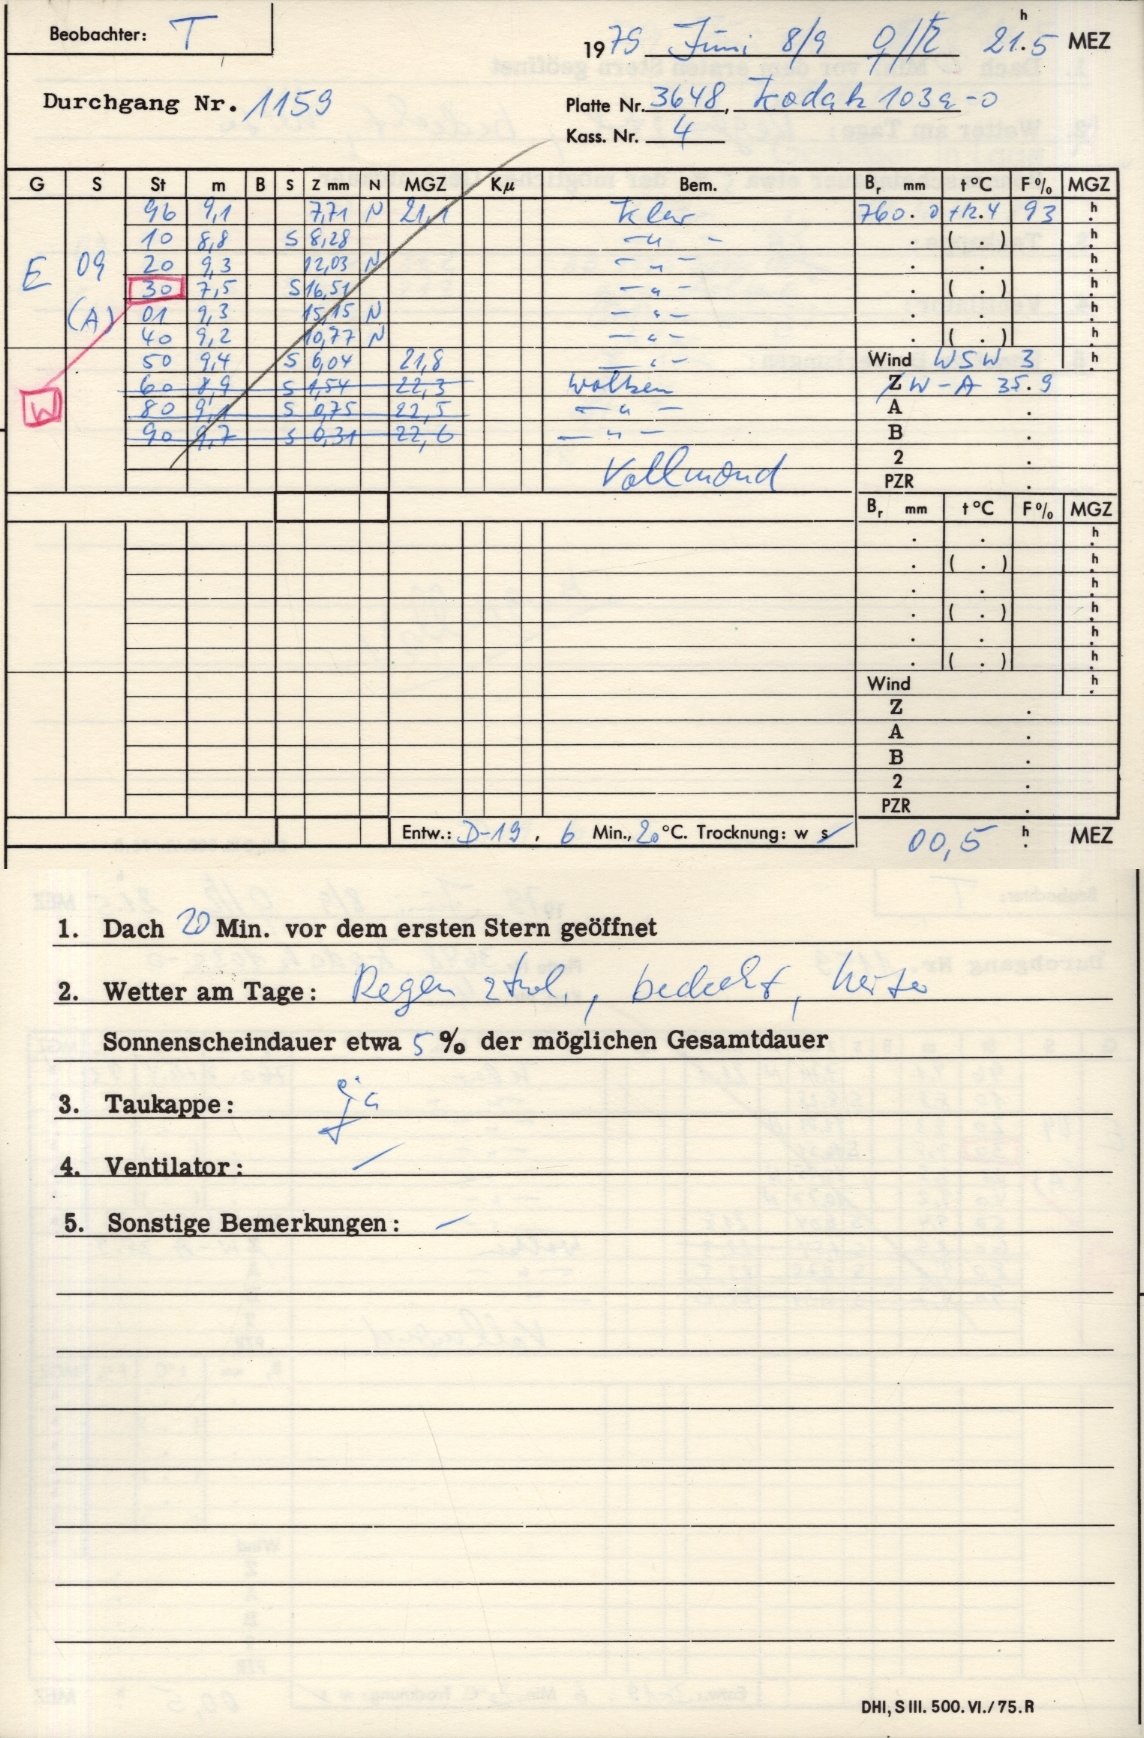 Beobachter: T
1979 Juni 8/9 21.5 h MEZ
Durchgang Nr. 1159
Platte Nr. 3648, Kodak 103a-O
Kass. Nr. 4
G S St m B S Z mm N MGZ Kμ Bem. Br mm t°C F% MGZ
96 9,1 7,71 N 21,1 klar 760.0 +12.4 93 h
10 8,8 S 8,28 —"— ( . ) h
E 09 20 9,3 12,03 N —"— h
30 7,5 S 16,51 —"— ( . ) h
(A) 01 9,3 15,15 N —"— h
40 9,2 10,77 N —"— ( . ) h
50 9,4 S 6,04 21,8 —"— Wind WSW 3 h
60 8,9 S 1,54 22,3 Wolken Z W-A 35.9
W 80 9,1 S 0,75 22,5 —"— A .
90 9,7 S 0,31 22,6 —"— B .
Vollmond 2 .
PZR .
Br mm t°C F% MGZ
. . h
. ( . ) h
. . h
. ( . ) h
. . h
. ( . ) h
Wind h
Z .
A .
B .
2 .
PZR .
Entw.: D-19, 6 Min., 20°C. Trocknung: w s 00,5 h MEZ
1. Dach 20 Min. vor dem ersten Stern geöffnet
2. Wetter am Tage: Regen, bedeckt, heiter
Sonnenscheindauer etwa 5 % der möglichen Gesamtdauer
3. Taukappe: ja
4. Ventilator: —
5. Sonstige Bemerkungen: —
DHI, S III. 500. VI./75. R